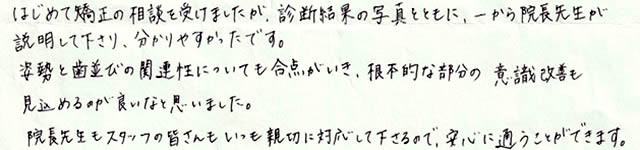 はじめて矯正の相談を受けましたが、診断結果の写真とともに、一から院長先生が
説明して下さり、分かりやすかったです。
姿勢と歯並びの関連性についても合点がいき、根本的な部分の意識改善も
見込めるのが良いなと思いました。
院長先生もスタッフの皆さんもいつも親切に対応して下さるので、安心に通うことができます。